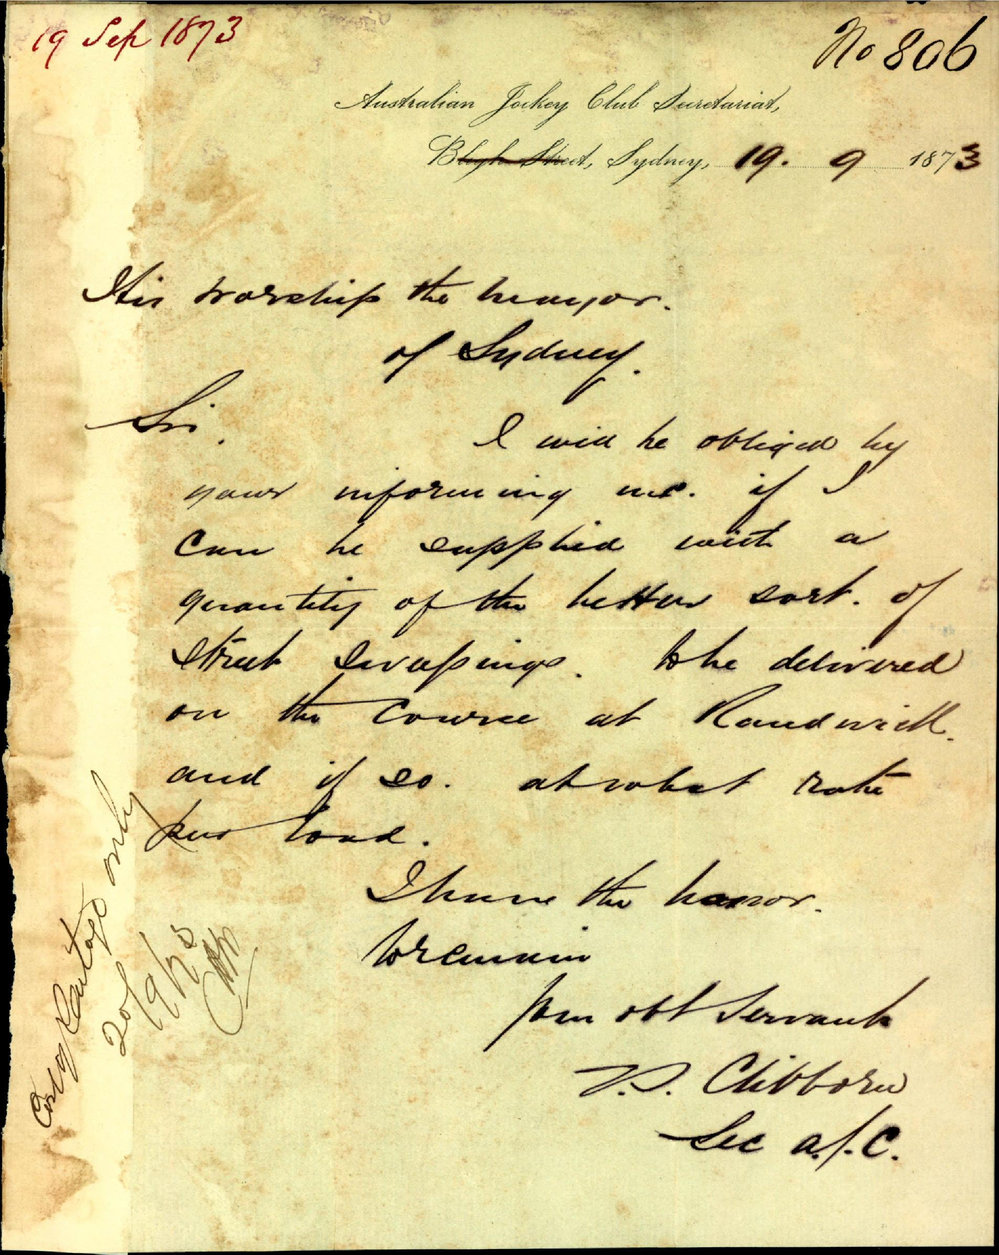 19 Sep 1873
No 806
Australian Jockey Club Secretariat,
Bligh Street, Sydney, 19. 9 1873
His worship the mayor.
of Sydney.
Sir. I will be obliged by
your informing me. if I
can be supplied with a
quantity of the better sort. of
Street Scrapings. to be delivered
on the Course at Randwick.
and if so. at what rate
per load.
I have the honor.
to remain
your obt Servant
T. S. Clibborn
Sec A.J.C.
Cost of Cartage only
20/9/73